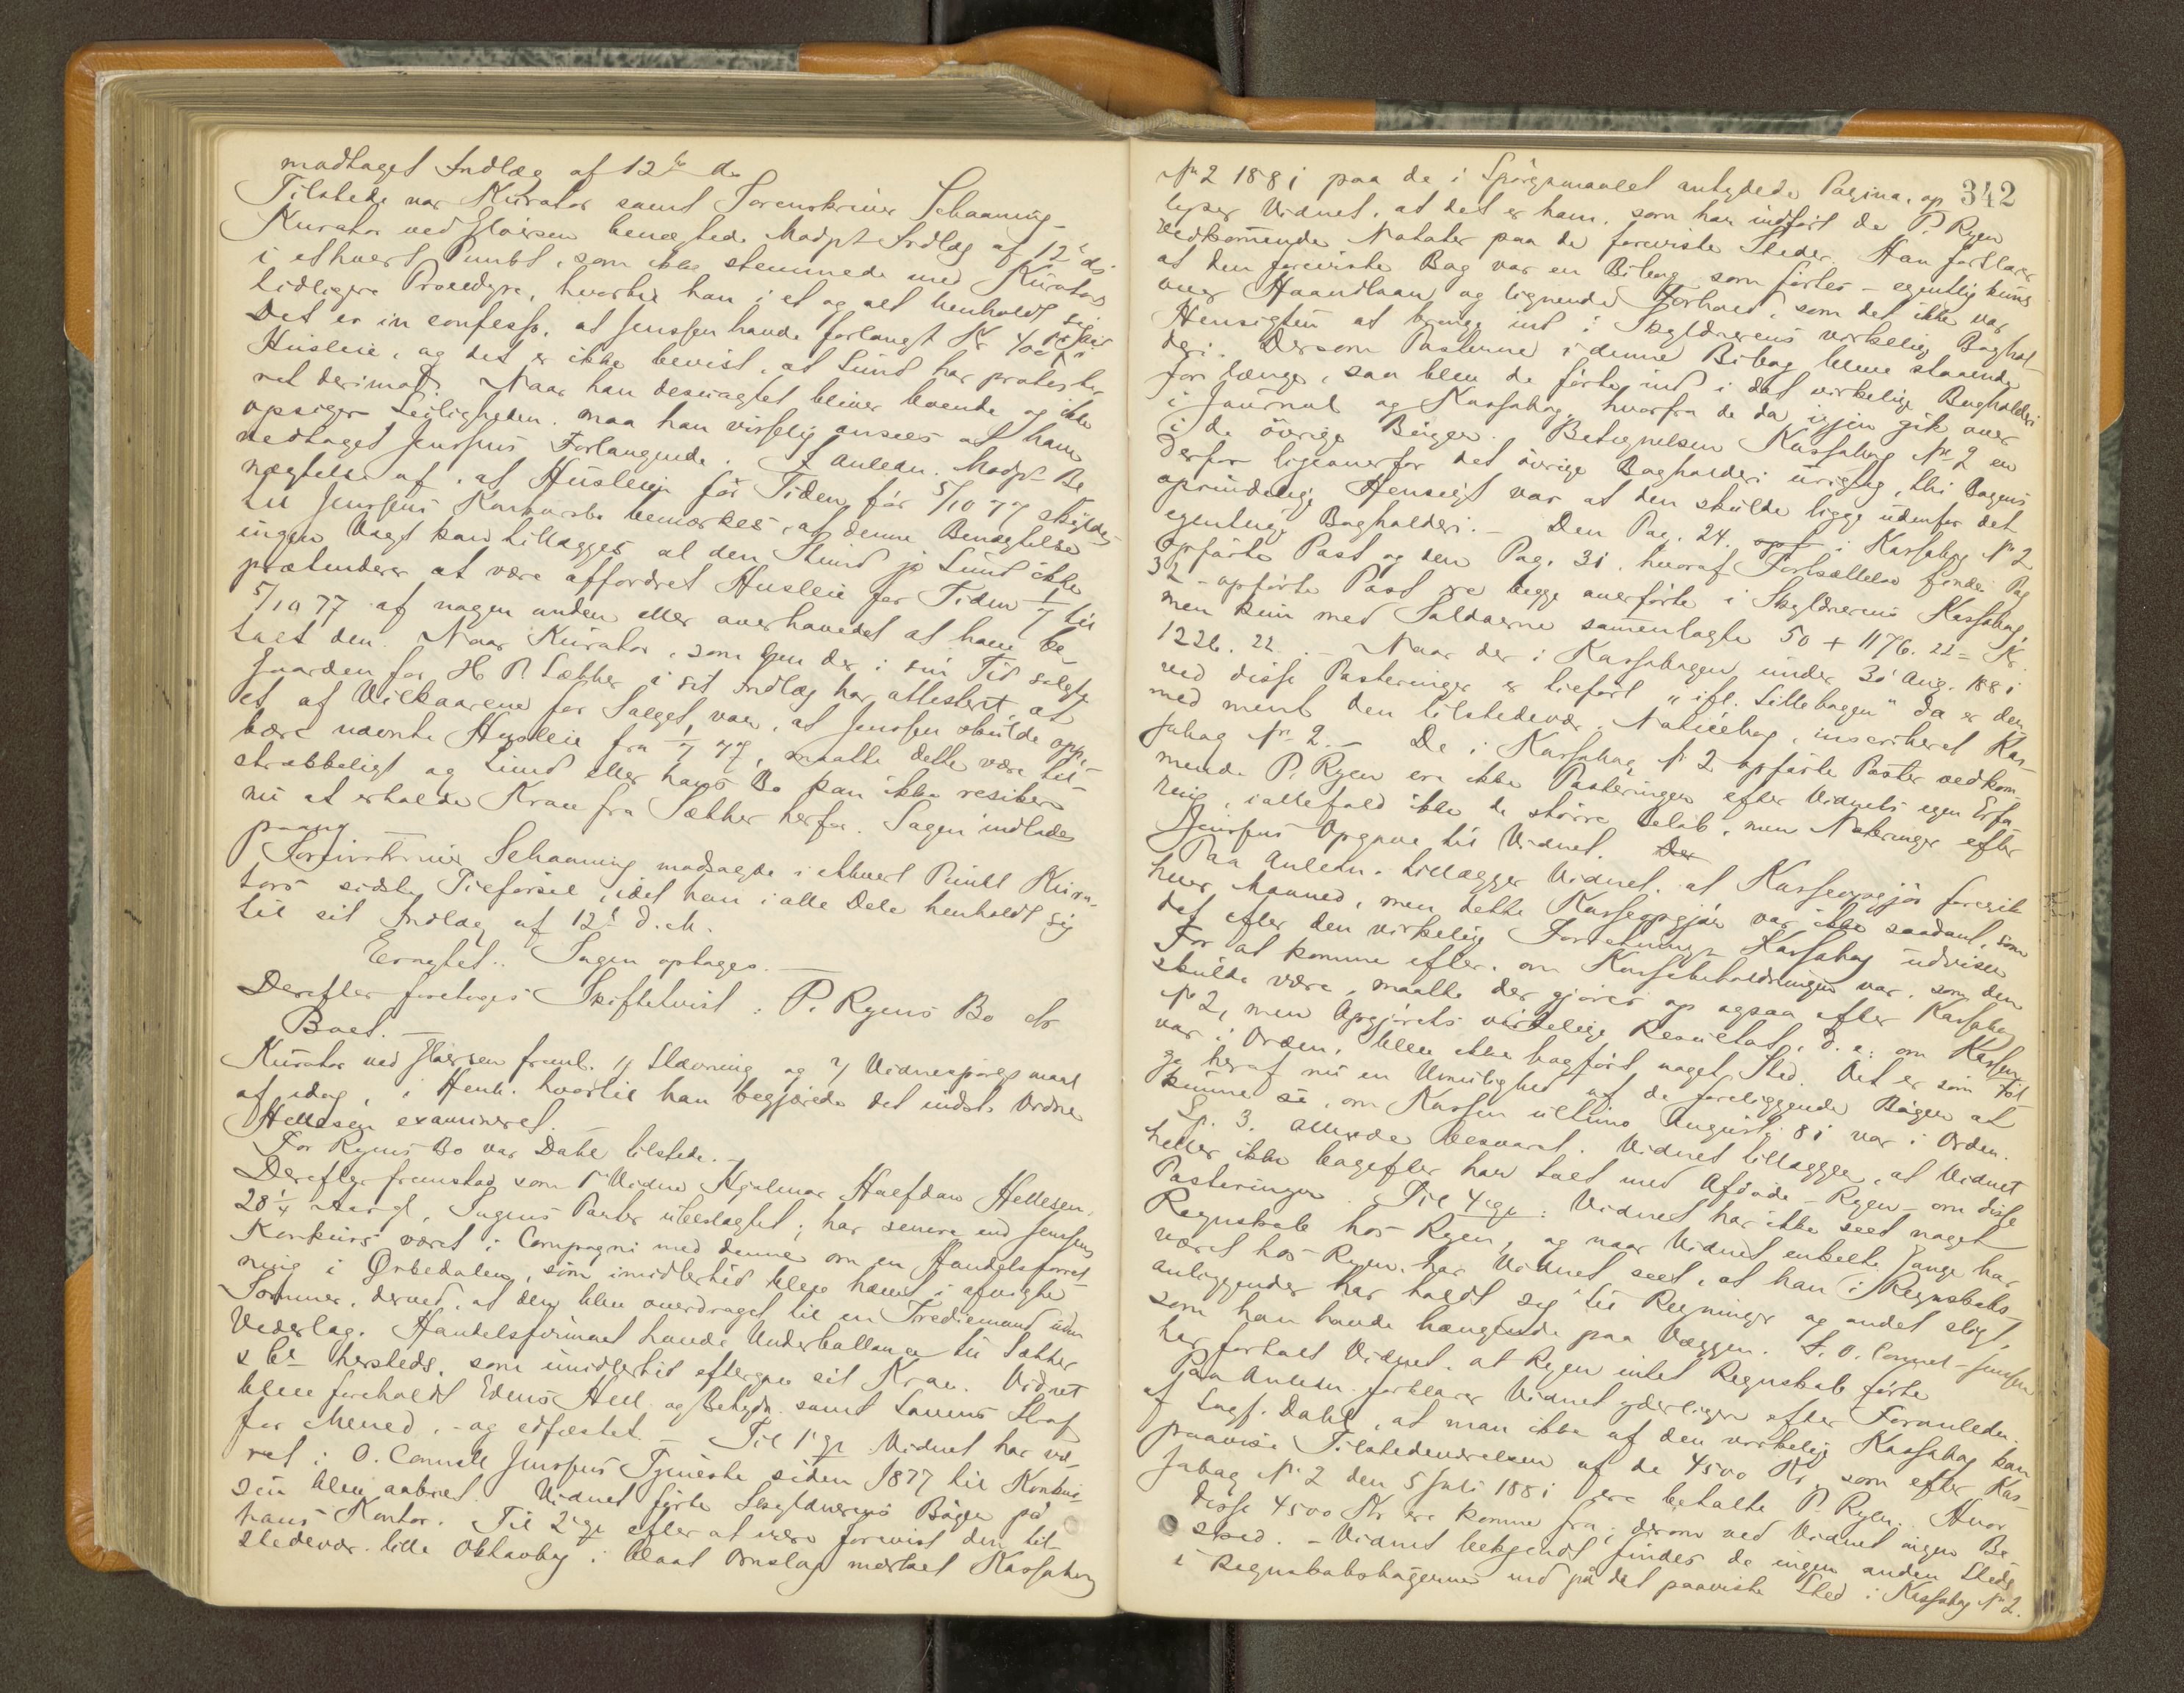 modtaget Indlæg af 12te ds
Tilstede var Kurator samt Sorenskriver Schaaning
Kurator ved Hoiesen benægtede Modpts Indlæg af 12' ds
i ethvert Punkt, som ikke stemmede med Kurators
tidligere Procedyre, hvortil han i et og alt henholdt sig
Det er in confesso, at Jenssen havde forlangt Kr 400 pr Aar i
Husleie, og det er ikke bevist, at Lund har protesteret
ret derimod. Naar han desuagtet bliver boende og ikke
opsiger Leiligheden, maa han visselig ansees at have
vedtaget Jenssens Forlangende. I Anledn. Modpts Be
nægtelse af, at Husleje før Tiden før 5/10 77 skyldes
til Jenssens Konkursbo bemærkes, at denne Benægtelse
ingen Vægt kan tillægges al den Stund jo Lund ikke
prætenderer at være affordret Husleie for Tiden 1/7 til
5/10 77 af nogen anden eller overhovedet at have be-
talt den. Naar Kurator, som den der i sin Tid solgte
Gaarden for H P Sæther i sit Indlæg har attesteret, at
et af Vilkaarene for Salget var, at Jenssen skulde oppe-
bære nævnte Husleie fra 1/7 77, maatte dette være til-
strækkeligt og Lund eller hans Bo kan ikke resikere
nu at erholde Krav fra Sæther herfor. Sagen indlades
paany.
Sorenskriver Schaaning modsagde i ethvert Punkt Kura-
tors sidste Tilførsel, idet han i alle Dele henholdt sig
til sit Indlæg af 12t d. M.
Eragtet: Sagen optages.
Derefter foretoges Skiftetvist: P. Ryens Bo ctr
Boet.
Kurator ved Hoiesen freml. 1) Stævning og 2) Vidnespørgsmaal
af idag, i Henh. hvortil han begjærede det indst. Vidne
Hellesen examineret.
For Ryens Bo var Dahl tilstede.
Derefter fremstod som 1' Vidne Hjalmar Halfdan Hellesen,
28 1/4 Aar gl, Sagens Parter ubeslægtet; har senere end Jenssens
Konkurs været i Compagni med denne om en Handelsforret-
ning i Ørkedalen, som imidlertid blev hævet i afvigte
Sommer, derved, at den blev overdraget til en Trediemand uden
Vederlag. Handelsfirmaet havde Underballance til Sæther
& Co hersteds, som imidlertid eftergav sit Krav. Vidnet
blev foreholdt Edens Hell. og Betydn. samt Lovens Straf
for Mened, - og edfæstet. - Til 1' Sp. Vidnet har væ-
ret i O. Connell Jenssens Tjeneste siden 1877 til Konkur-
sen blev aabnet. Vidnet førte Skyldnerens Bøger på
hans Kontor. Til 2' Sp. efter at være forevist den til-
stedevær. lille Oktavbog i blaat Omslag mærket Kassabog
342
No 2 1881 paa de i Spørgsmaalet antydede Pagina, op
lyser Vidnet, at det er ham, som har indført de P. Ryen
vedkommende Notater paa de foreviste Steder. Han forklarer
at den foreviste Bog var en Bibog som førtes - egentlig kuns
over Haandlaan og lignende Forhold, som det ikke var
Hensigten at bringe ind i Skyldnerens virkelig Boghol-
deri. Dersom Posterne i denne Bibog bleve staaende
for længe, saa blev de førte ind i det virkelige Bogholderi
i Journal og Kassabog, hvorfra de da igjen gik over
i de øvrige Bøger. Betegnelsen Kassabog No 2 er
derfor ligeoverfor det øvrige Bogholderi urigtig, thi Bogens
oprindelige Hensigt var at den skulde ligge udenfor det
egentlige Bogholderi. - Den Pag. 24. i Kassabog No 2
opførte Post og den Pag. 31. hvoraf Fortsættelse findes Pag
32 - opførte Post ere begge overførte i Skyldnerens Kassabog,
men kun med Saldoerne sammenlagte 50 + 1176. 22 = Kr.
1226. 22. - Naar der i Kassabogen under 31 Aug. 1881
ved disse Posteringer er tilført "ifl. Lillebogen" da er der-
med ment den tilstedevær. Noticebog, inscriberet Kas-
sabog No 2. - De i Kassabog No 2 opførte Poster vedkom-
mende P. Ryen ere ikke Posteringer efter Vidnets egen Erfa-
ring, i alletald ikke de større Beløb, men Noteringer efter
Jenssens Opgave til Vidnet. Der
Paa Anledn. tillægger Vidnet, at Kasseopgjør foregik
hver Maaned, men dette Kasseopgjør var ikke saadant, som
det efter den virkelige Forretnings Kassabog udviser
For at komme efter, om Kassabeholdningen var, som den
skulde være, maatte der gjøres op ogsaa efter Kassabog
No 2, men Opgjørets virkelige Resultat, d. e: om Kassen
var i Orden, blev ikke bogført noget Sted. Det er som Føl-
ge heraf nu en Umulighed af de foreliggende Bøger at
kunne se, om Kassen ultimo August 81 var i Orden.
Sp. 3. Allerede besvaret. Vidnet tillægger, at Vidnet
heller ikke bagefter har talt med Afdøde - Ryen - om disse
Posteringer. Til 4' Sp.: Vidnet har ikke seet noget
Regnskab hos Ryen, og naar Vidnet enkelte Gange har
været hos Ryen, har Vidnet seet, at han i Regnskabs-
anliggender har holdt sig til Regninger og andet sligt,
som han havde hængende paa Væggen. S. O. Connel-Jenssen
har fortalt Vidnet, at Ryen intet Regnskab førte.
Paa Anledn. forklarer Vidnet yderligere efter Foranledn.
af Sagf. Dahl, at man ikke af den virkelig Kassabog kan
paavise Tilstedeværelsen af de 4500 Kr, som efter Kas-
sabog No 2 den 5 Juli 1881 ere betalte P. Ryen. Hvor
disse 4500 Kr ere komne fra, derom ved Vidnet ingen Be
sked. - Vidnet bekjendt findes de ingen anden Steds
i Regnskabsbøgerne end på det paaviste Sted i Kassabog No 2.